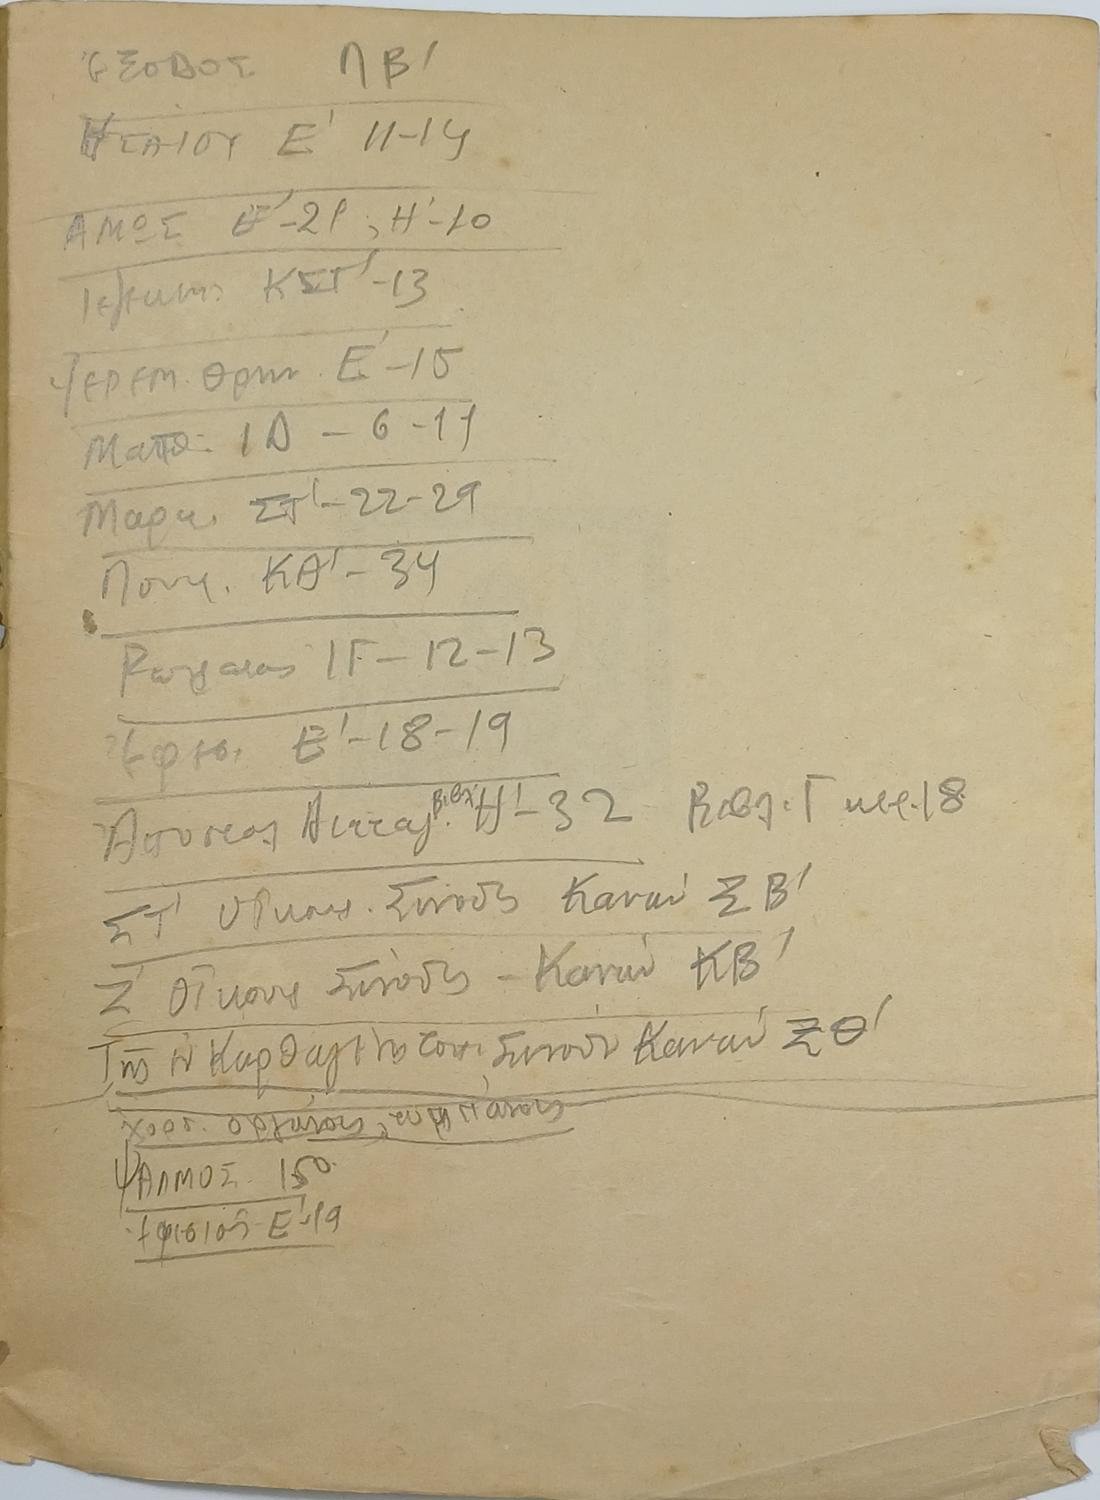 ἜΞΟΔΟΣ ΛΒ΄
ΗΣΑΙΟΥ Ε΄ 11-14
ΑΜΩΣ Ε΄-21, Η΄-10
ΚΣΤ΄-13
ΙΕΡΕΜ. Θρην. Ε΄-15
Ματθ. ΙΔ - 6-11
Μαρκ. ΣΤ΄-22-29
Λουκ. ΚΑ΄-34
Ρωμαιους ΙΓ-12-13
Ἐφεσ. Ε΄-18-19
Ἀποστολ Διαταγ. Βιβλ. Η΄-32 Βιβλ. Γ κεφ. 18
ΣΤ΄ Οἰκουμ. Σύνοδος Κανὼν ΞΒ΄
Ζ΄ Οἰκουμ Σύνοδος - Κανὼν ΚΒ΄
Τῆς ἐν Καρθαγένῃ τοπ. Συνόδου Κανὼν ΞΘ΄
χορδ. ὀργάνοις, τυμπάνοις
ΨΑΛΜΟΣ. 150.
Ἐφεσίους Ε΄-19